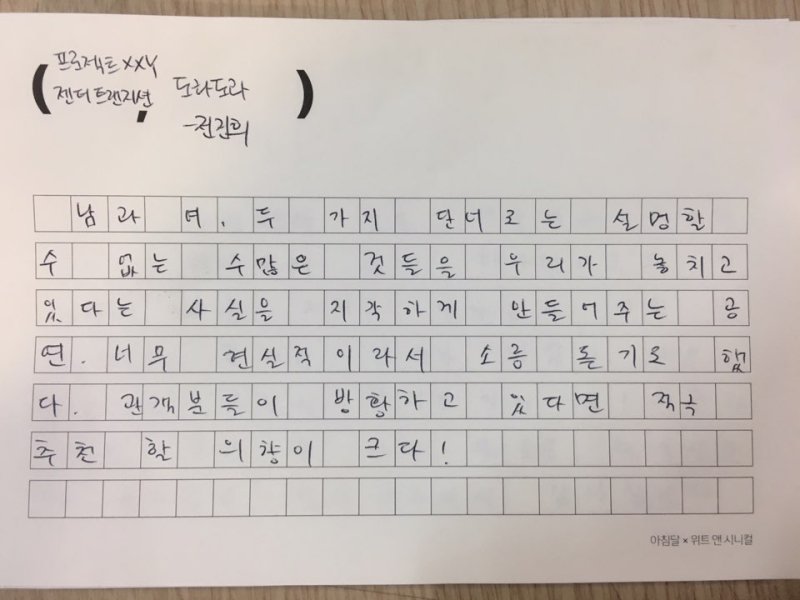 프로젝트 XXY
젠더트랜지션, 도라도라
-전진희
남과 여, 두 가지 단너로는 설명할
수 없는 수많은 것들을 우리가 놓치고
있다는 사실을 지각하게 만들어주는 공
연. 너무 현실적이라서 소름 돋기도 했
다. 관객분들이 방황하고 있다면 적극
추천 할 의향이 크다!
아침달 × 위트 앤 시니컬